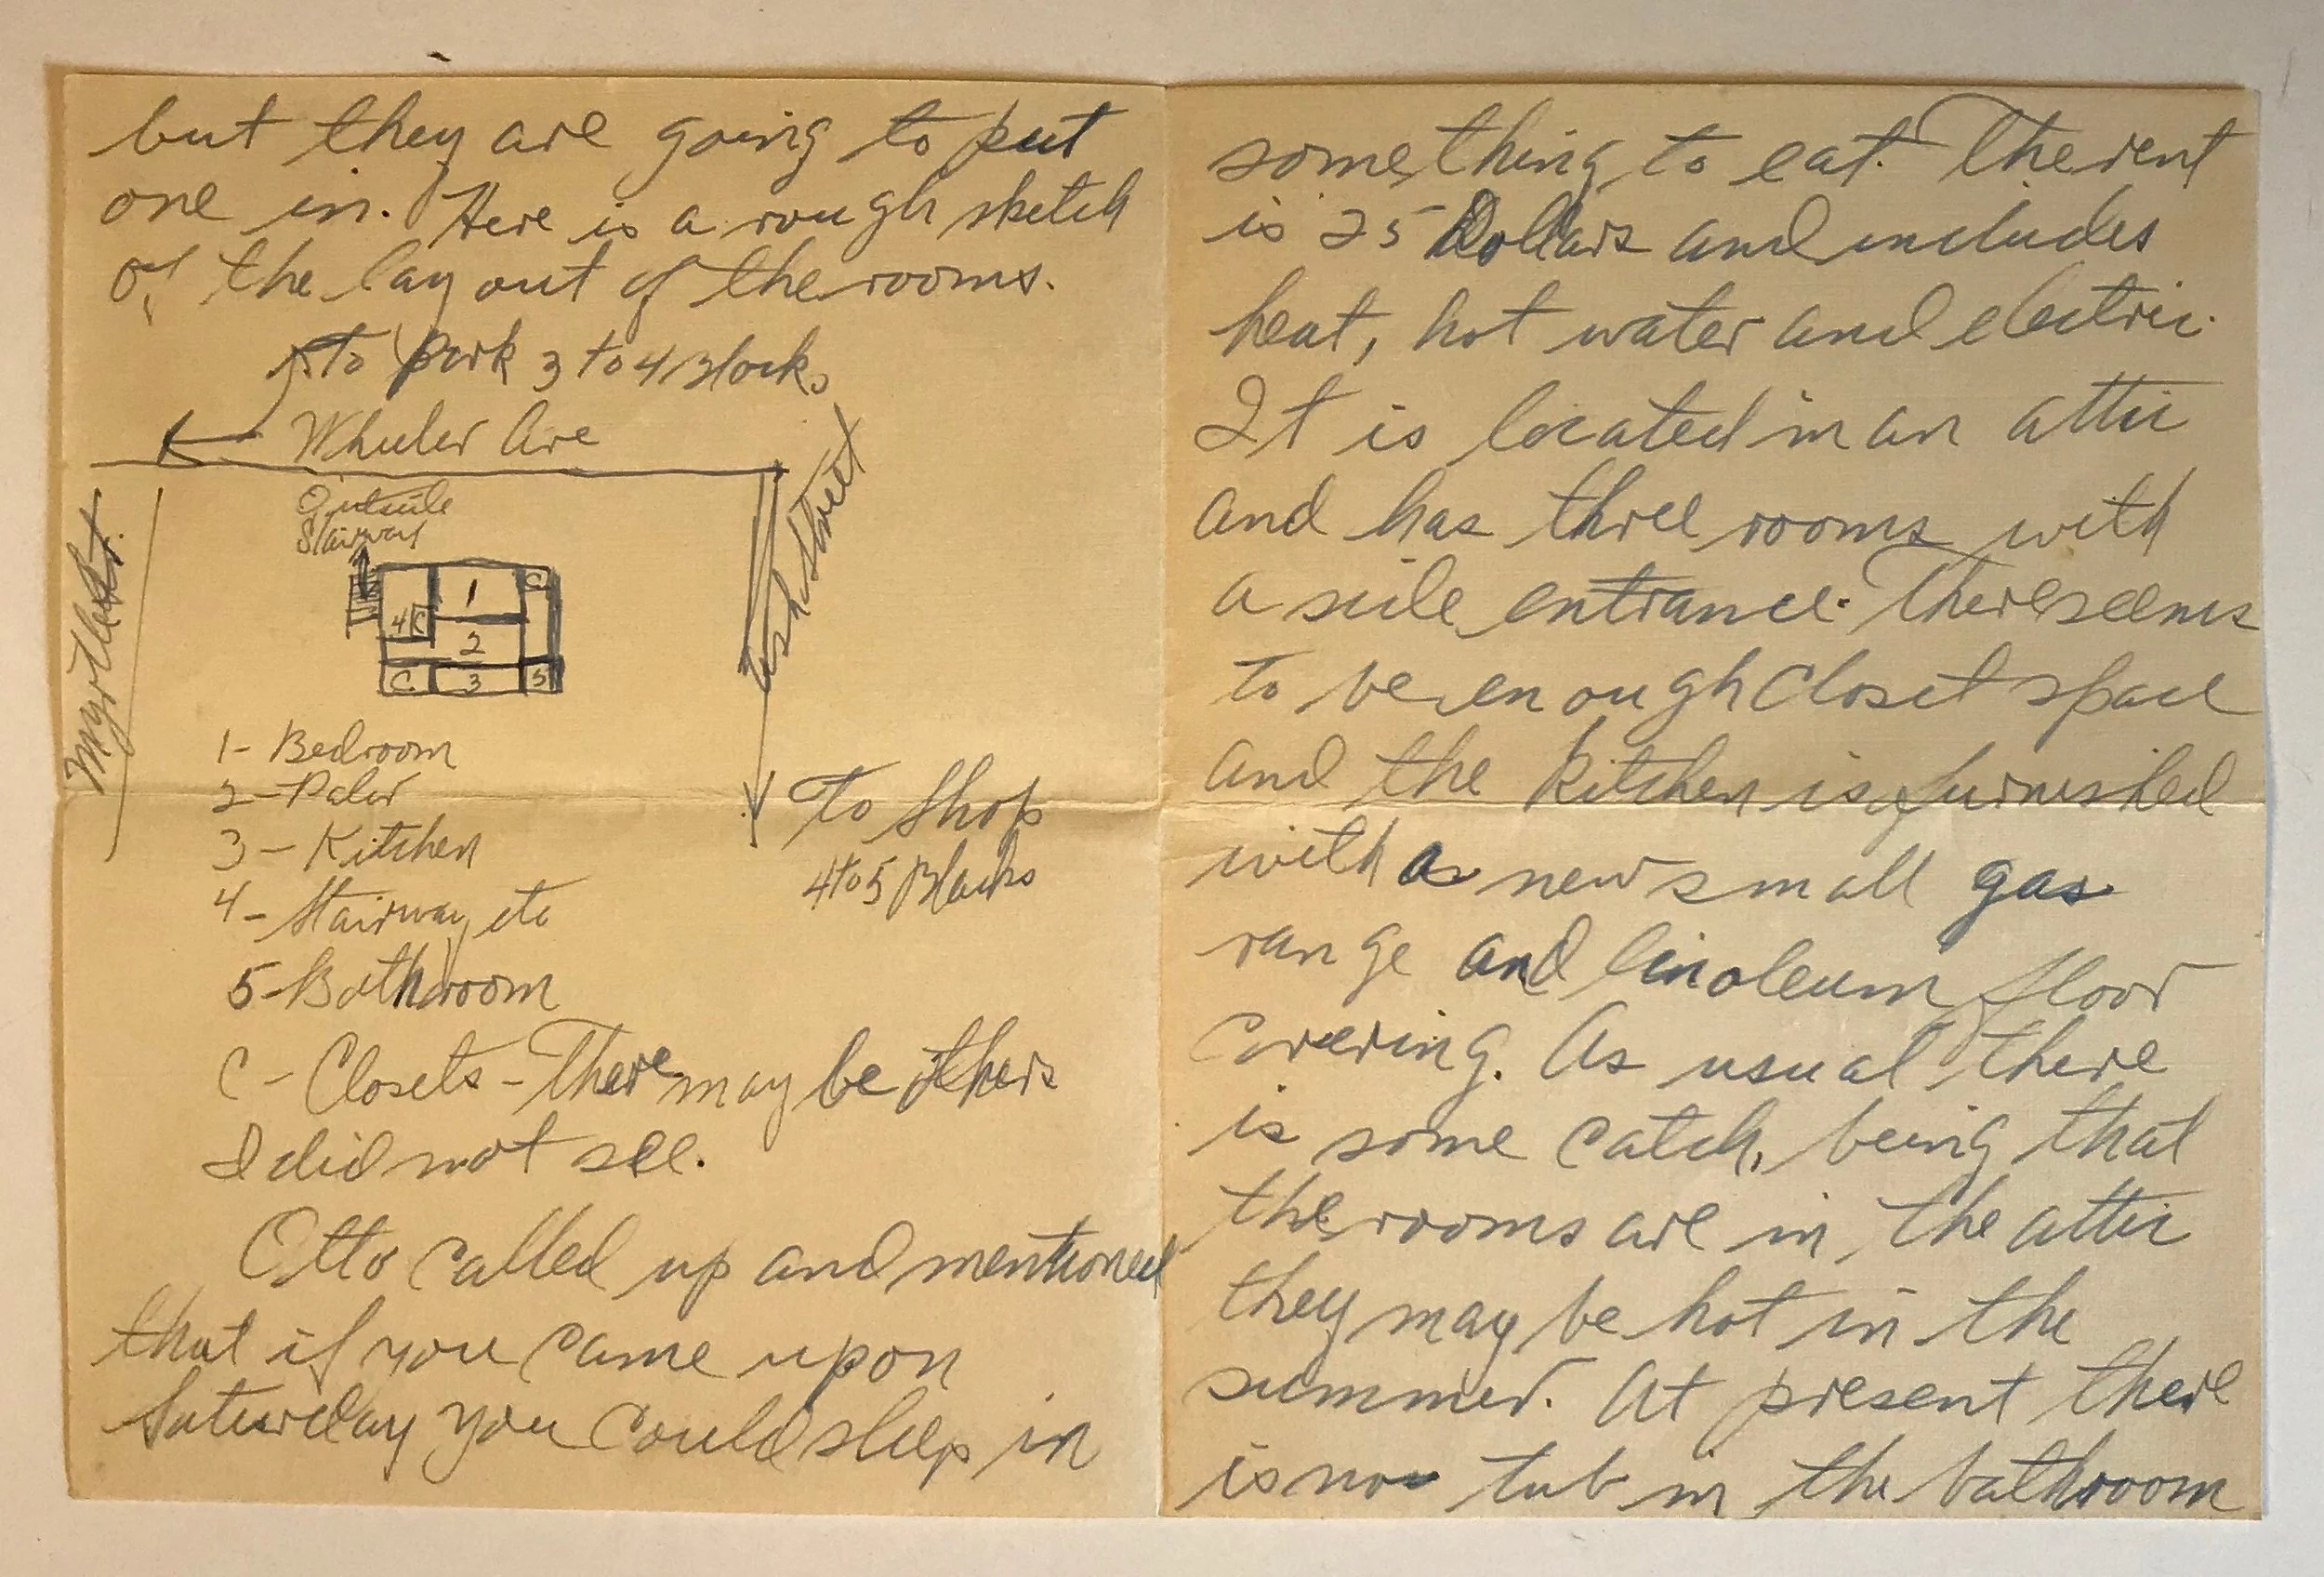 but they are going to put
one in. Here is a rough sketch
of the layout of the rooms.
to Park 3 to 4 Blocks
Wheeler Ave
Outside
Stairway
Myrtle St.
Ash Street
1
C
4 C
2
C 3 5
1- Bedroom
2- Palor
3- Kitchen
4- Stairway etc
5- Bathroom
To Shop
4 to 5 Blocks
C- Closets - There may be others
I did not see.
Otto called up and mentioned
that if you came up on
Saturday you could sleep in
something to eat. The rent
is 25 Dollars and includes
heat, hot water and electric.
It is located in an attic
and has three rooms with
a side entrance. There seems
to be enough closet space
and the kitchen is furnished
with a new small gas
range and linoleum floor
covering. As usual there
is some catch, being that
the rooms are in the attic
they may be hot in the
summer. At present there
is no tub in the bathroom